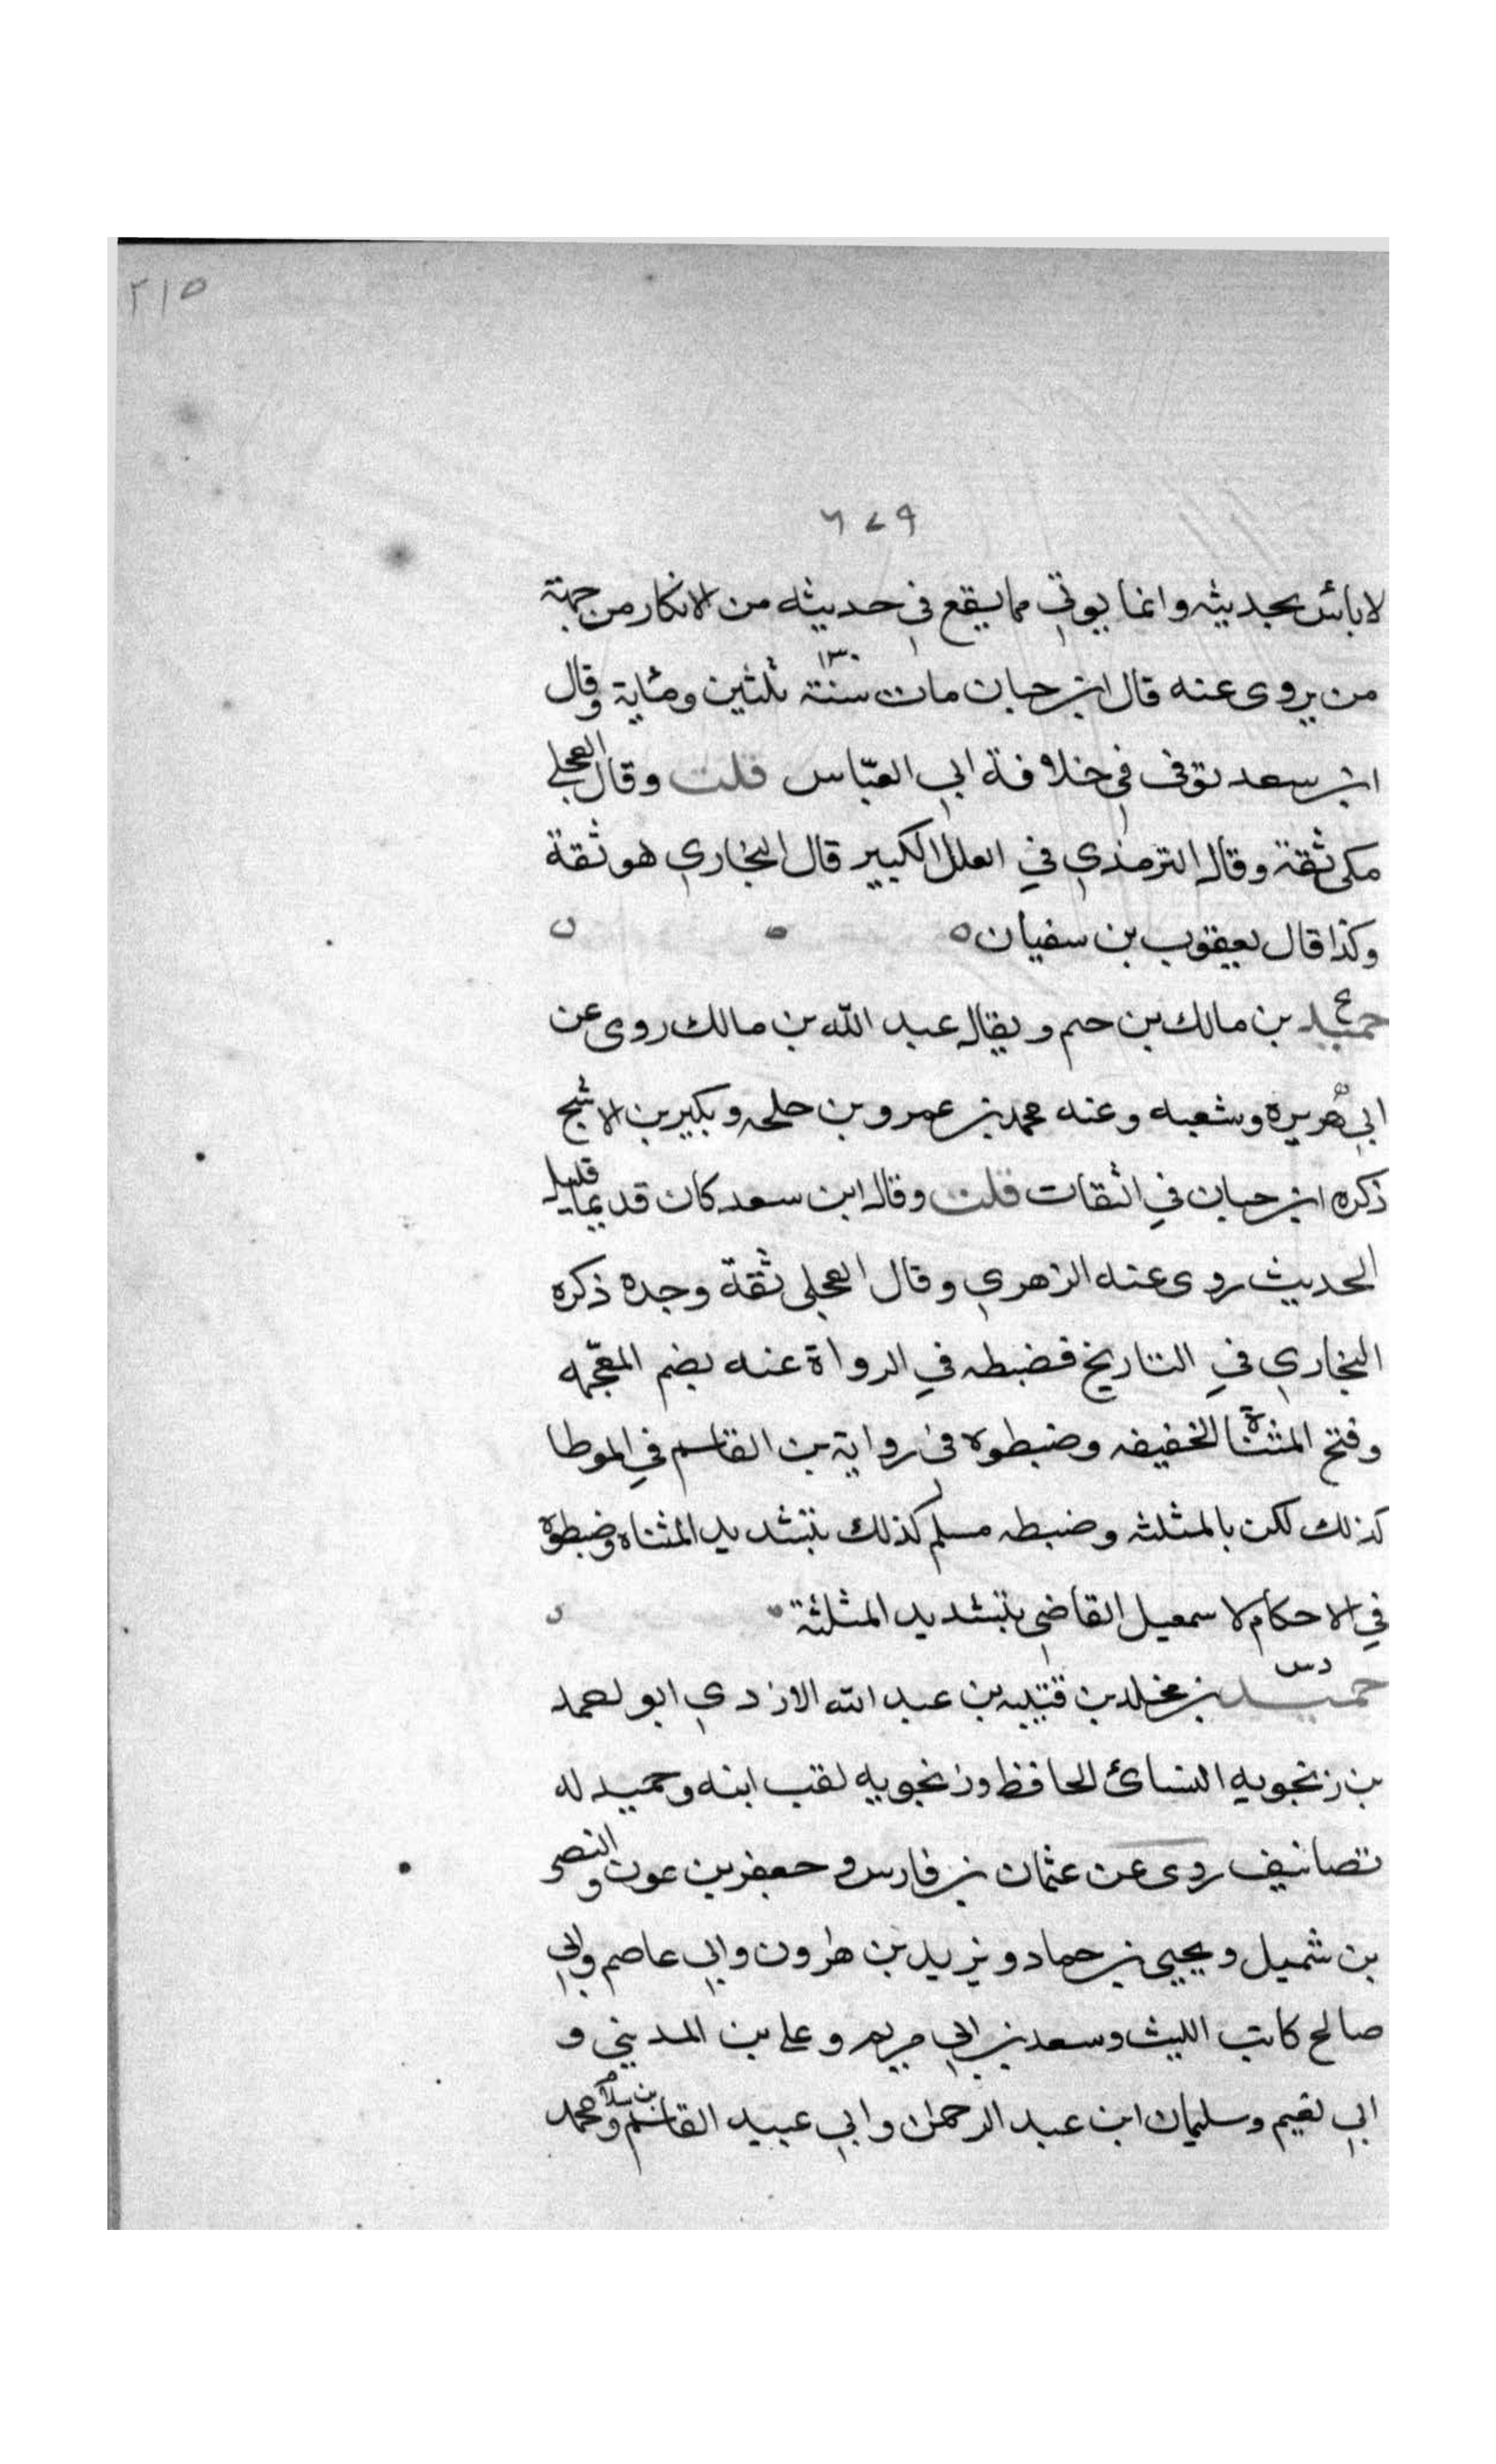 ٢١٥
٦٧٩
لا بائس بحديثه وانما يوتي مما يقع في حديثه من الانكار من جهة
من يروى عنه قال ابن حبان مات سنة ١٣٠ ثلثين ومئاية وقال
ابن سعد توفى في خلافة ابي العبّاس قلت وقال العجلي
مكى ثقة وقال الترمذي في العلل الكبير قال البخاري هو ثقة
وكذا قال يعقوب بن سفيان
حميد بن مالك بن حم ويقال عبد الله بن مالك روى عن
ابي هريره وشعبه وعنه محمد بن عمرو بن حلحه وبكير بن الاشج
ذكره ابن حبان في الثقات قلت وقال ابن سعد كان قديما قليل
الحديث روى عنه الزهري وقال العجلي ثقة وجده ذكره
البخاري في التاريخ فضبطه في الرواة عنه بضم المعجمه
وفتح المثناة الخفيفه وضبطوه في رواية بن القاسم في الموطا
كذلك لكن بالمثلثه وضبطه مسلم كذلك بتشديد المثناه وضبطوه
في الاحكام لاسمعيل القاضي بتشديد المثلثة
دس
حميد بن مخلد بن قتيبه بن عبد الله الازدي ابو احمد
بن زنجويه النسائ الحافظ وزنجويه لقب ابنه وحميد له
تصانيف روى عن عثمان بن فارس وجعفر بن عون والنصر
بن شميل ويحيى بن حماد ويزيد بن هرون وابي عاصم وابي
صالح كاتب الليث وسعد بن ابي مريم وعلي بن المديني و
ابي نعيم وسليمان ابن عبد الرحمن وابي عبيد القاسم بن سلام ومحمد